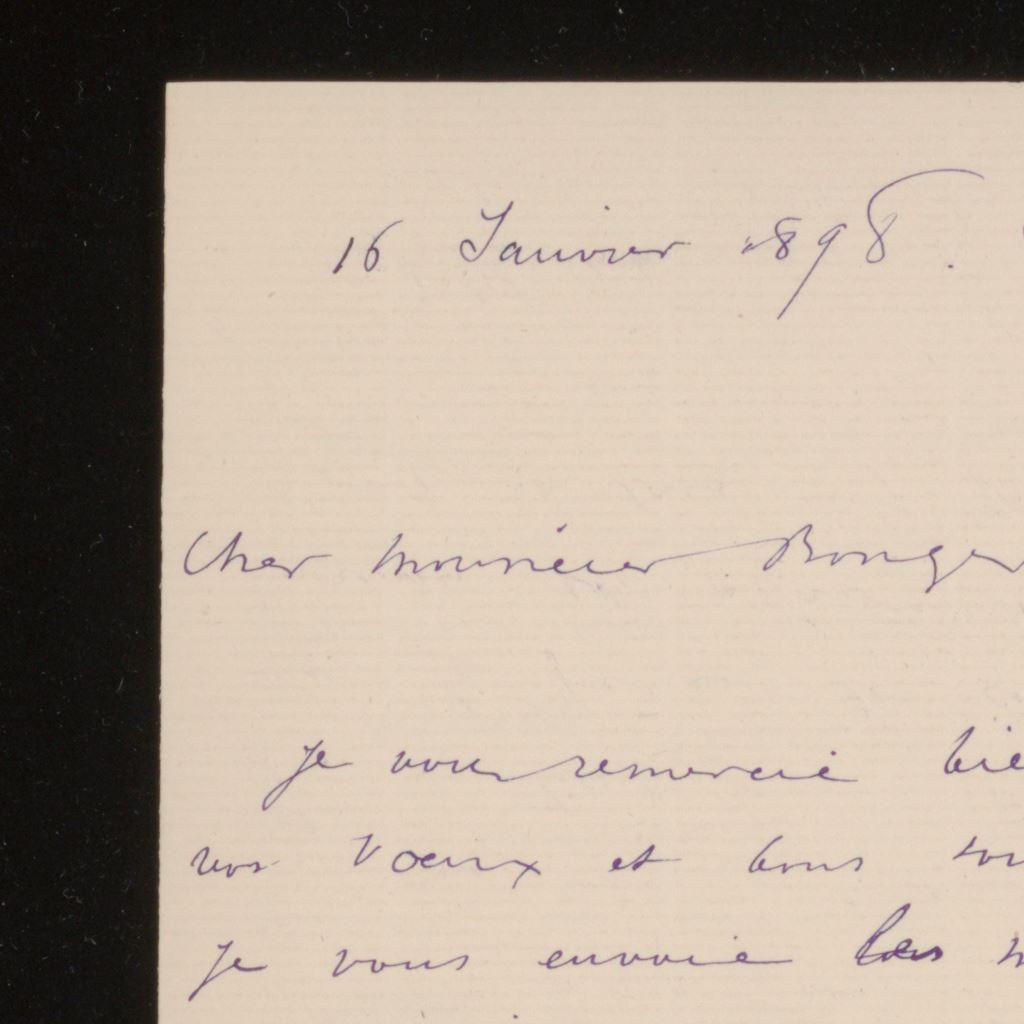 16 Janvier 1898.
Cher monsieur Bonger
je vous remercie bie
vos voeux et bons sou
Je vous envoie les